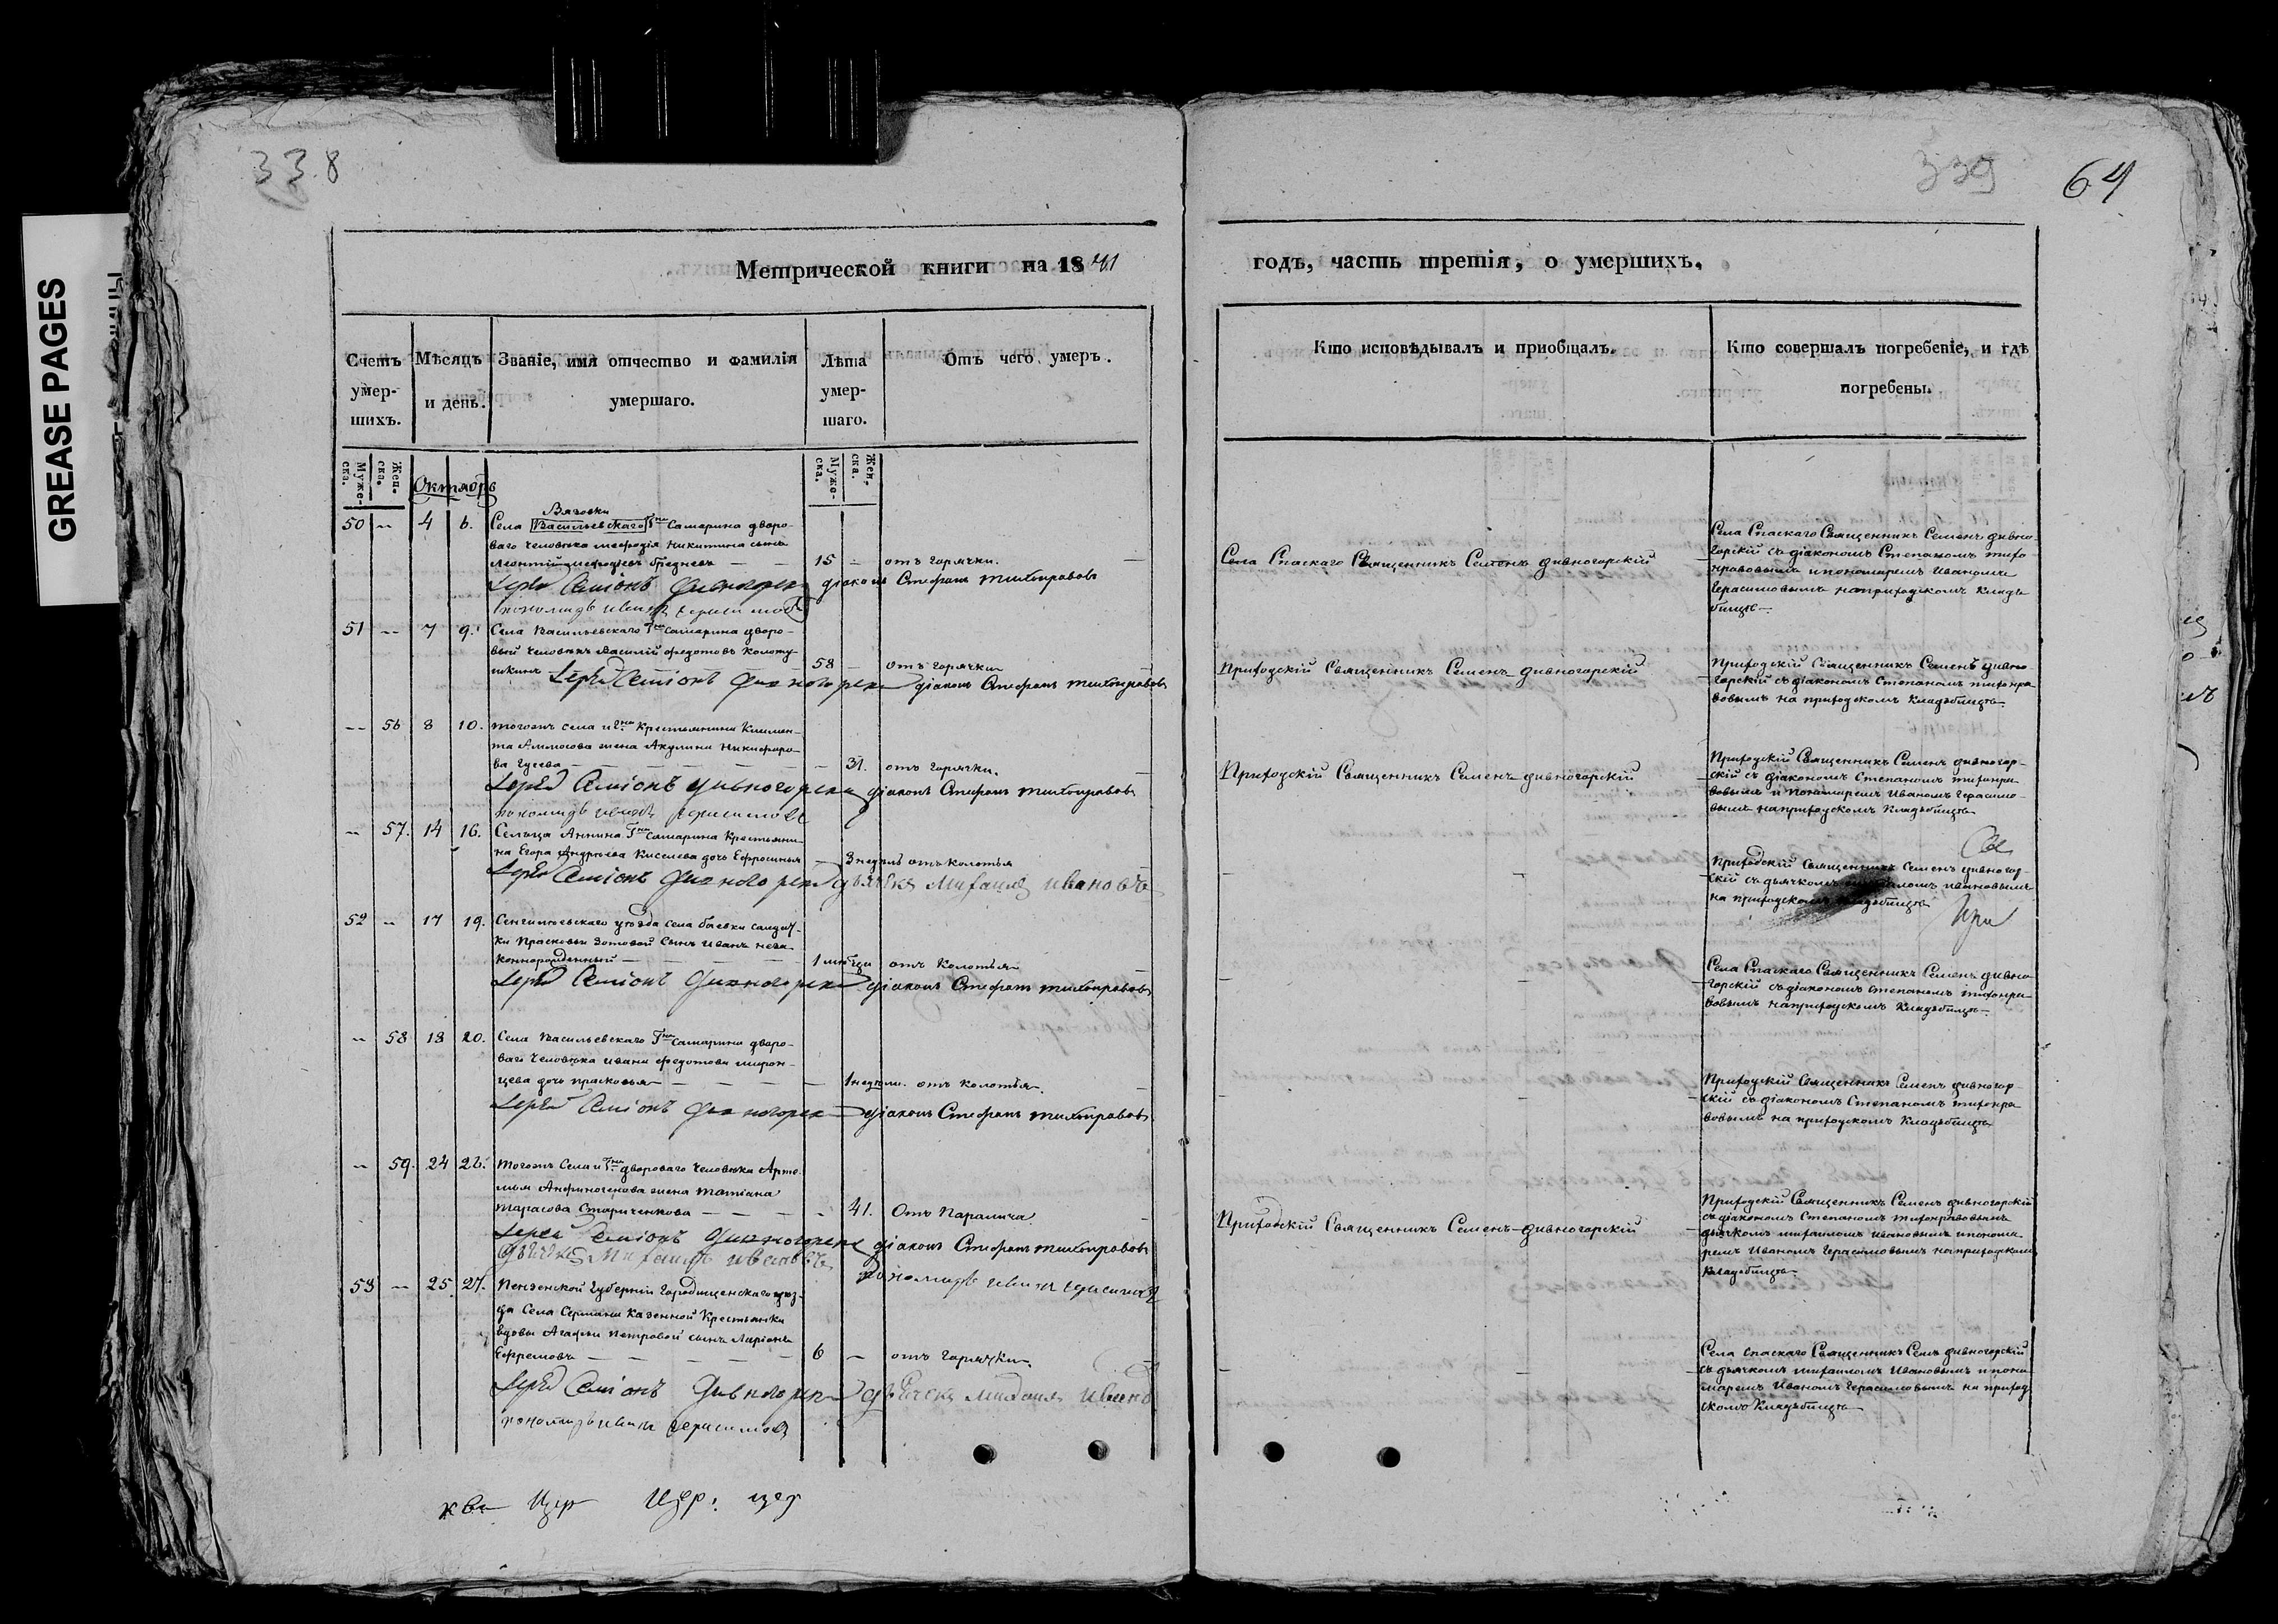 GREASE PAGES
338
339
64
Метрической книги на 1841
годъ, часть третія, о умершихъ.
Счетъ умер-шихъ.
Мѣсяцъ и день.
Званіе, имя отчество и фамилія умершаго.
Лѣта умер-шаго.
Отъ чего умеръ.
Кто исповѣдывалъ и приобщалъ.
Кто совершалъ погребеніе, и гдѣ погребены.
Муже-ска.
Жен-ска.
Октябрь
Муже-ска.
Жен-ска.
Вязовки
50 -- 4 6. Села Васильевскаго Гна Самарина дворо-
ваго человѣка мефодія Никитина сынъ
15 - отъ горячки.
діаконъ Стефанъ тихонравовъ
Села Спаскаго Священникъ Семенъ дивногорскій
Села Спаскаго Священникъ Семенъ дивно-
горскій съ діакономъ Степаномъ тихо-
нравовымъ и пономаремъ Иваномъ
Герасимовымъ на приходскомъ кладъ-
бищѣ
51 -- 7 9. Села Васильевскаго Гна Самарина дворо-
вый человѣкъ Василій федотовъ колоту-
шкинъ
58 - отъ горячки
Іерей Семіонъ дивногорск діаконъ Стефанъ тихонравовъ
Приходскій Священникъ Семенъ дивногорскій
Приходскій Священникъ Семенъ дивно-
горскій съ діакономъ Степаномъ тихонра-
вовымъ на приходскомъ кладъбищѣ
-- 56 8 10. тогожъ села и Гна крестьянина Климен-
та Аммосова жена Акулина Никифоро-
ва Гусева
31. отъ горячки.
Іерей Семіонъ дивногорски діаконъ Стефанъ тихонравовъ
Приходскій Священникъ Семенъ дивногорскій
Приходскій Священникъ Семенъ дивногор-
скій съ діакономъ Степаномъ тихонра-
вовымъ и пономаремъ Иваномъ Герасимо-
вымъ на приходскомъ кладъбищѣ
-- 57. 14 16. Сельца Аннина Гна Самарина крестьяни-
на Егора Андреева Киселева дочь Ефросинья
3 недѣль отъ колотья
Іерей Семіонъ дивногорск дьячекъ Михаилъ Ивановъ
Приходскій Священникъ Семенъ дивногор-
скій съ дьячкомъ Ивановымъ
на приходскомъ кладъбищѣ
52 -- 17 19. Сенгилѣевскаго уѣзда села баевки солдат-
ки Прасковьи Зотовой сынъ Иванъ неза-
коннорожденный
1 мѣсяца отъ колотья
Іерей Семіонъ дивногорск діаконъ Стефанъ тихонравовъ
Села Спаскаго Священникъ Семенъ дивно-
горскій съ діакономъ Степаномъ тихонра-
вовымъ на приходскомъ кладъбищѣ
-- 58 18 20. Села Васильевскаго Гна Самарина дворо-
ваго человѣка Ивана федотова мирон-
цева дочь прасковья
1 недѣли. отъ колотья.
Іерей Семіонъ дивногорск діаконъ Стефанъ тихонравовъ
Приходскій Священникъ Семенъ дивногор-
скій съ діакономъ Степаномъ тихонра-
вовымъ на приходскомъ кладъбищѣ
-- 59. 24 26. тогожъ Села и Гна двороваго человѣка Арте-
мья Анфиногенова жена татіана
тарасова Стариченкова
41. Отъ Паралича.
Іерей Семіонъ дивногорск діаконъ Стефанъ тихонравовъ
дьячекъ Михаилъ Ивановъ
пономарь Иванъ Герасимовъ
Приходскій Священникъ Семенъ дивногорскій
Приходскій Священникъ Семенъ дивногорскій
съ діакономъ Степаномъ тихонравовымъ
дьячкомъ михаиломъ Ивановымъ и понома-
ремъ Иваномъ Герасимовымъ на приходскомъ
кладъбищѣ
53 -- 25. 27. Пензенской Губерніи Городищенскаго уѣз-
да Села Сермани Казенной Крестьянки
вдовы Агафьи петровой сынъ Ларіонъ
Ефремовъ
6 - отъ Горячки.
Іерей Семіонъ дивногорск дьячекъ михаилъ Иванов
пономарь Иванъ Герасимовъ
Села Спаскаго Священникъ Семенъ дивногорскій
съ дьякомъ михаиломъ Ивановымъ и поно-
маремъ Иваномъ Герасимовымъ на приход-
скомъ кладъбищѣ